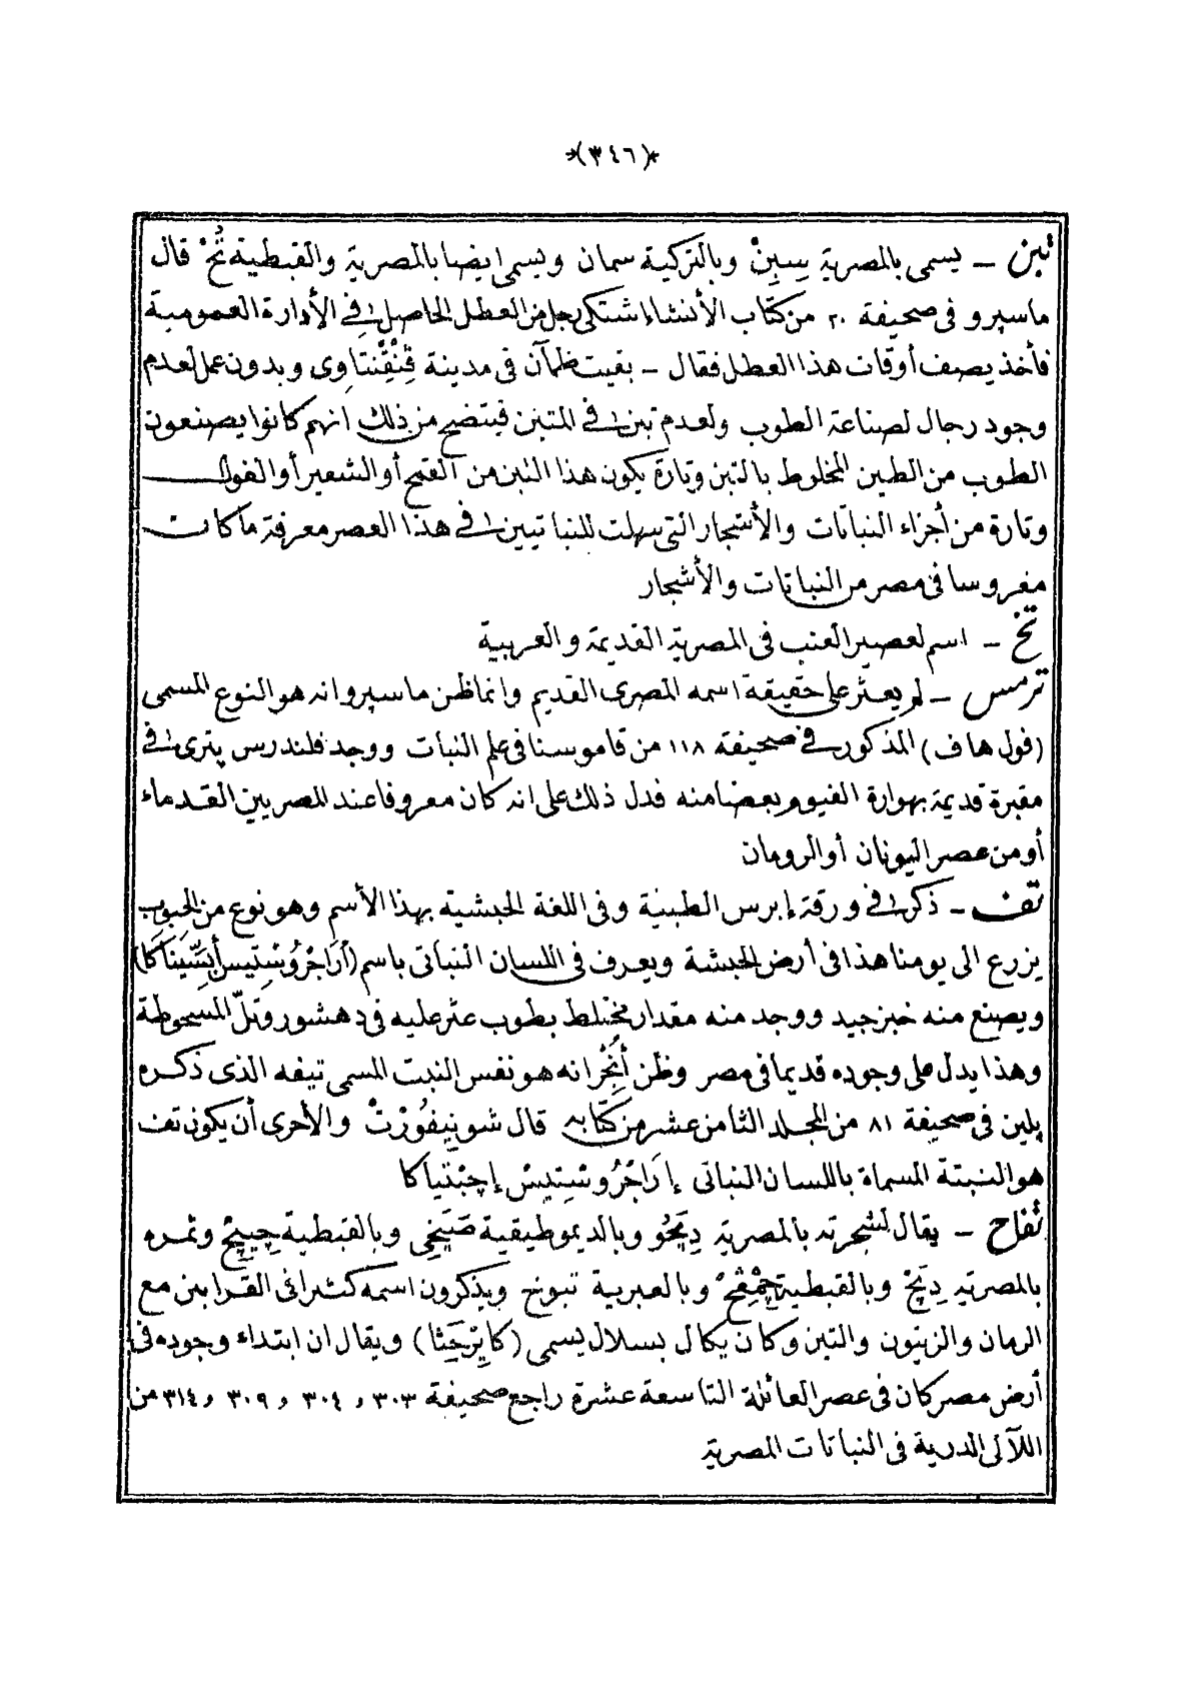 *(٣٤٦)*
تبن — يسمى بالمصرية سِبِنْ وبالتركية سمان ويسمى ايضا بالمصرية والقبطية تُخْ قال
ماسپرو فى صحيفة ٢٠ من كتاب الأنشاء اشتكى رجل من العطل الحاصل فى الأدارة العمومية
فأخذ يصف أوقات هذا العطل فقال — بقيت ظمآن فى مدينة قِنْقِنْتَاوى وبدون عمل لعدم
وجود رجال لصناعة الطوب ولعدم تبن فى المتبن فيتضح من ذلك انهم كانوا يصنعون
الطوب من الطين المخلوط بالتبن وتارة يكون هذا التبن من القمح أو الشعير أو الفول
وتارة من أجزاء النباتات والأشجار التى سهلت للنباتيين فى هذا العصر معرفة ما كان
مغروسا فى مصر من النباتات والأشجار
تخ — اسم لعصير العنب فى المصرية القديمة والعربية
ترمس — لم يعثر على حقيقة اسمه المصرى القديم وانما ظن ماسپرو انه هو النوع المسمى
(فول هاف) المذكور فى صحيفة ١١٨ من قاموسنا فى علم النبات ووجد فلندرس پترى فى
مقبرة قديمة بهوارة الفيوم بعضا منه فدل ذلك على انه كان معروفا عند المصريين القدماء
أو من عصر اليونان أو الرومان
تف — ذكر فى ورقة إبرس الطبية وفى اللغة الحبشية بهذا الأسم وهو نوع من الحبوب
يزرع الى يومنا هذا فى أرض الحبشة ويعرف فى اللسان النباتى باسم (أَرَاجْرُوسْتِيس أَبِسِّينَاكَا)
ويصنع منه خبز جيد ووجد منه مقدار مختلط بطوب عثر عليه فى دهشور وتلّ المسخوطة
وهذا يدل على وجوده قديما فى مصر وظن أُنْجِر انه هو نفس النبت المسمى تيفه الذى ذكره
پلين فى صحيفة ٨١ من المجلد الثامن عشر من كتابه قال شوينِفُورْتْ والأحرى أن يكون تف
هو النبتة المسماة باللسان النباتى إرَاجْرُوسْتِيسْ إجِبْتْيَاكا
تفاح — يقال لشجرته بالمصرية دِيَحُو وبالديموطيقية وبالقبطية وثمره
بالمصرية دِپَحْ وبالقبطية وبالعبرية تبوخ ويذكرون اسمه كثيرا فى القرابين مع
الرمان والزيتون والتين وكان يكال بسلال يسمى (كَايِرْحِثَا) ويقال ان ابتداء وجوده فى
أرض مصر كان فى عصر العائلة التاسعة عشرة راجع صحيفة ٣٠٣ و ٣٠٤ و ٣٠٩ و ٣١٤ من
اللآلى الدرية فى النباتات المصرية